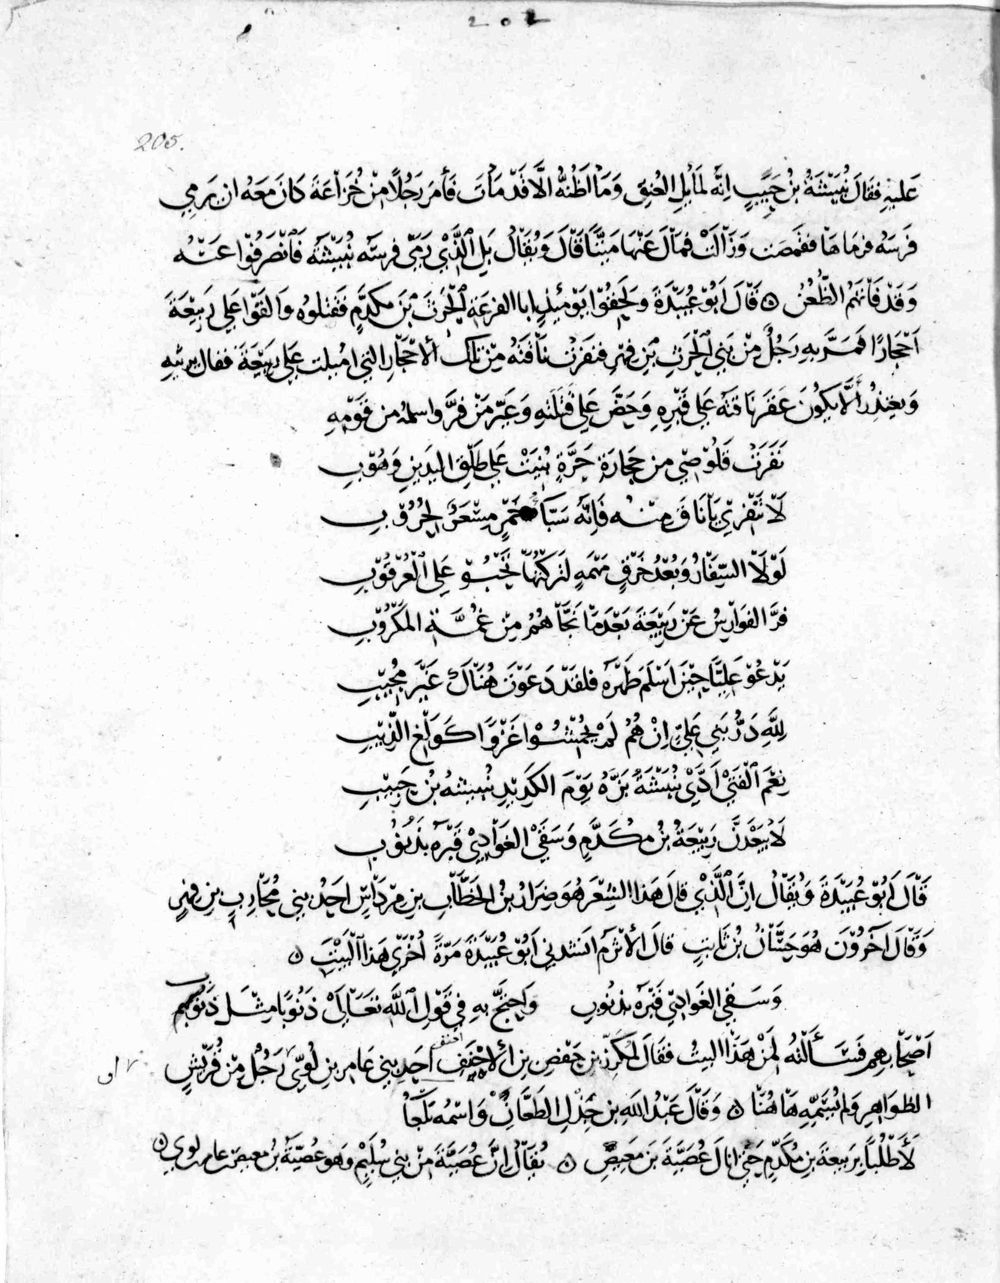 202
205.
عَليهِ فقَالَ نُبَيْشَةُ بْنُ حَبِيبٍ اِنَّه لمَائِل العُنق وَمَا اَظُنُّهُ الَّا قَدْ مَاتَ فَأمَرَ رَجُلًا مِنْ خُزَاعَة كَانَ مَعَهُ ان يَرمي
فَرَسَهُ فرمَاهَا فقَمَصَت وَزَالَتْ فمَالَ عَنْهَا مَيِّتًا قَالَ وَيُقَالُ بَلِ الَّذْي رَمَى فَرسَه نُبَيْشَة فَانْصَرفُوْا عَنْهُ
وَقَدْ فَاتَهُم الظُّعُنُ ۞ قَالَ اَبُوْ عُبَيْدَةَ وَلَحِقُوْا يَوْمَئِذٍ ابا الفرعَةِ الْحٰرثَ بْنَ مكدَّمٍ فقتلوُه وَالقَوْا عَلى رَبيْعَةَ
اَحْجَارًا فمَرَّ بهِ رَجُلٌ مِنْ بَني الْحٰرث بْنِ فِهْرٍ فنفَرَتْ نَاقَتُهُ مِنْ تلْكَ الاحْجَار التي اهيلت على رَبيْعَة فقال يرثيهِ
وَيعْتذُر اَلَّا يكُونَ عَقَرَ نَاقتَه عَلى قَبْرهِ وَحَضَّ عَلى قَتَلتهِ وَعَيَّر مَنْ فرَّ واسلمهُ من قَوْمِهِ
نَفَرَتْ قَلُوْصِي من حِجَارَةِ حَرَّةٍ بُنيَتْ عَلى طَلْقِ اليَدَينِ وَهُوْبِ
لَا تَنْفِرِي يَا نَاقَ مِنْهُ فَاِنَّه سَبَّاءُ خَمْرٍ مِسْعَرٌ لِحُرُوْبِ
لَوْلَا السِّفَارُ وَبُعْدُ خَرْقٍ مَهْمَهٍ لَتركتُهَا تَحْبُوْ عَلَى الْعُرْقوُبِ
فَرَّ الفَوَارسُ عَنْ رَبيْعَة بَعْدَ مَا نَجَّاهُمُ مِنْ غُمَّةِ المَكْرُوْبِ
يَدْعُوْ عَلِيًّا حِيْنَ اَسْلَمَ ظَهْرَه فلقَدْ دَعَوْتَ هُنَاكَ غيْرَ مُجِيْبِ
لِلَّهِ دَرُّ بَني عَلِيٍّ اِنْ هُمُ لَمْ يَحْمِشُوْا غَزْوًا كَوَلْغِ الذِّيْبِ
نِعْمَ الْفَتٰى اَدَّى نُبَيْشَةُ بَزَّهُ يَوْمَ الكَدِيْدِ نُبيشةُ بْنُ حَبِيْبِ
لَا يبْعَدَنَّ رَبيْعَةُ بْنُ مكَدَّمِ وَسَقَى الغَوَادِيْ قَبْرَه بذَنُوْبِ
قَالَ اَبُوْ عُبَيْدَةَ وَيُقَالُ اِنَّ الَّذْي قَالَ هَذا الشِّعْرَ هُوَ ضِرَارُ بْنُ الخَطَّابِ بنِ مِرْدَاسٍ احَدُ بني مُحَارِبِ بن فهرٍ
وَقَالَ آخَرُوْنَ هُوَ حَسَّانُ بْنُ ثَابِتٍ قَالَ الأثْرَم انشدنى اَبُوْ عُبَيْدَة مَرّةً اُخْرَى هَذا البَيْتَ ۞
وَسَقى الغَوادِيْ قَبْرَه بذنوبِ وَاحتجَّ بهِ في قَوْلِ اللّٰهِ تَعَالَى ذَنُوْبًا مِثْلَ ذَنُوْبِ
اَصْحَابهِم فَسَأَلتُهُ لمَنْ هَذا البيتُ فقَالَ لمكرَزِ بن حَفْصِ بن الاحْيَفِ احَدِ بني عَامر بنِ لُؤيّ رَجُلٌ مِنْ قُرَيْشِ
الظوَاهرِ وَلم يُسَمِّهِ هَا هُنَا ۞ وَقَالَ عَبْدُ اللّٰهِ بن جَذلِ الطعَّانِ وَاسْمُهُ بَلعَاء
لَأطْلُبَنَّ برَبيعَةَ بن مُكَدّمٍ حَتى انَالَ عُصَيَّة بنَ مَعيصِ ۞ يُقَالُ اِنَّ عُصَيَّة مَنْ بَنى سُلَيْمٍ وَهوَ عُصَيَّةُ بْنُ معيصِ بن عامر بن لوي ۞